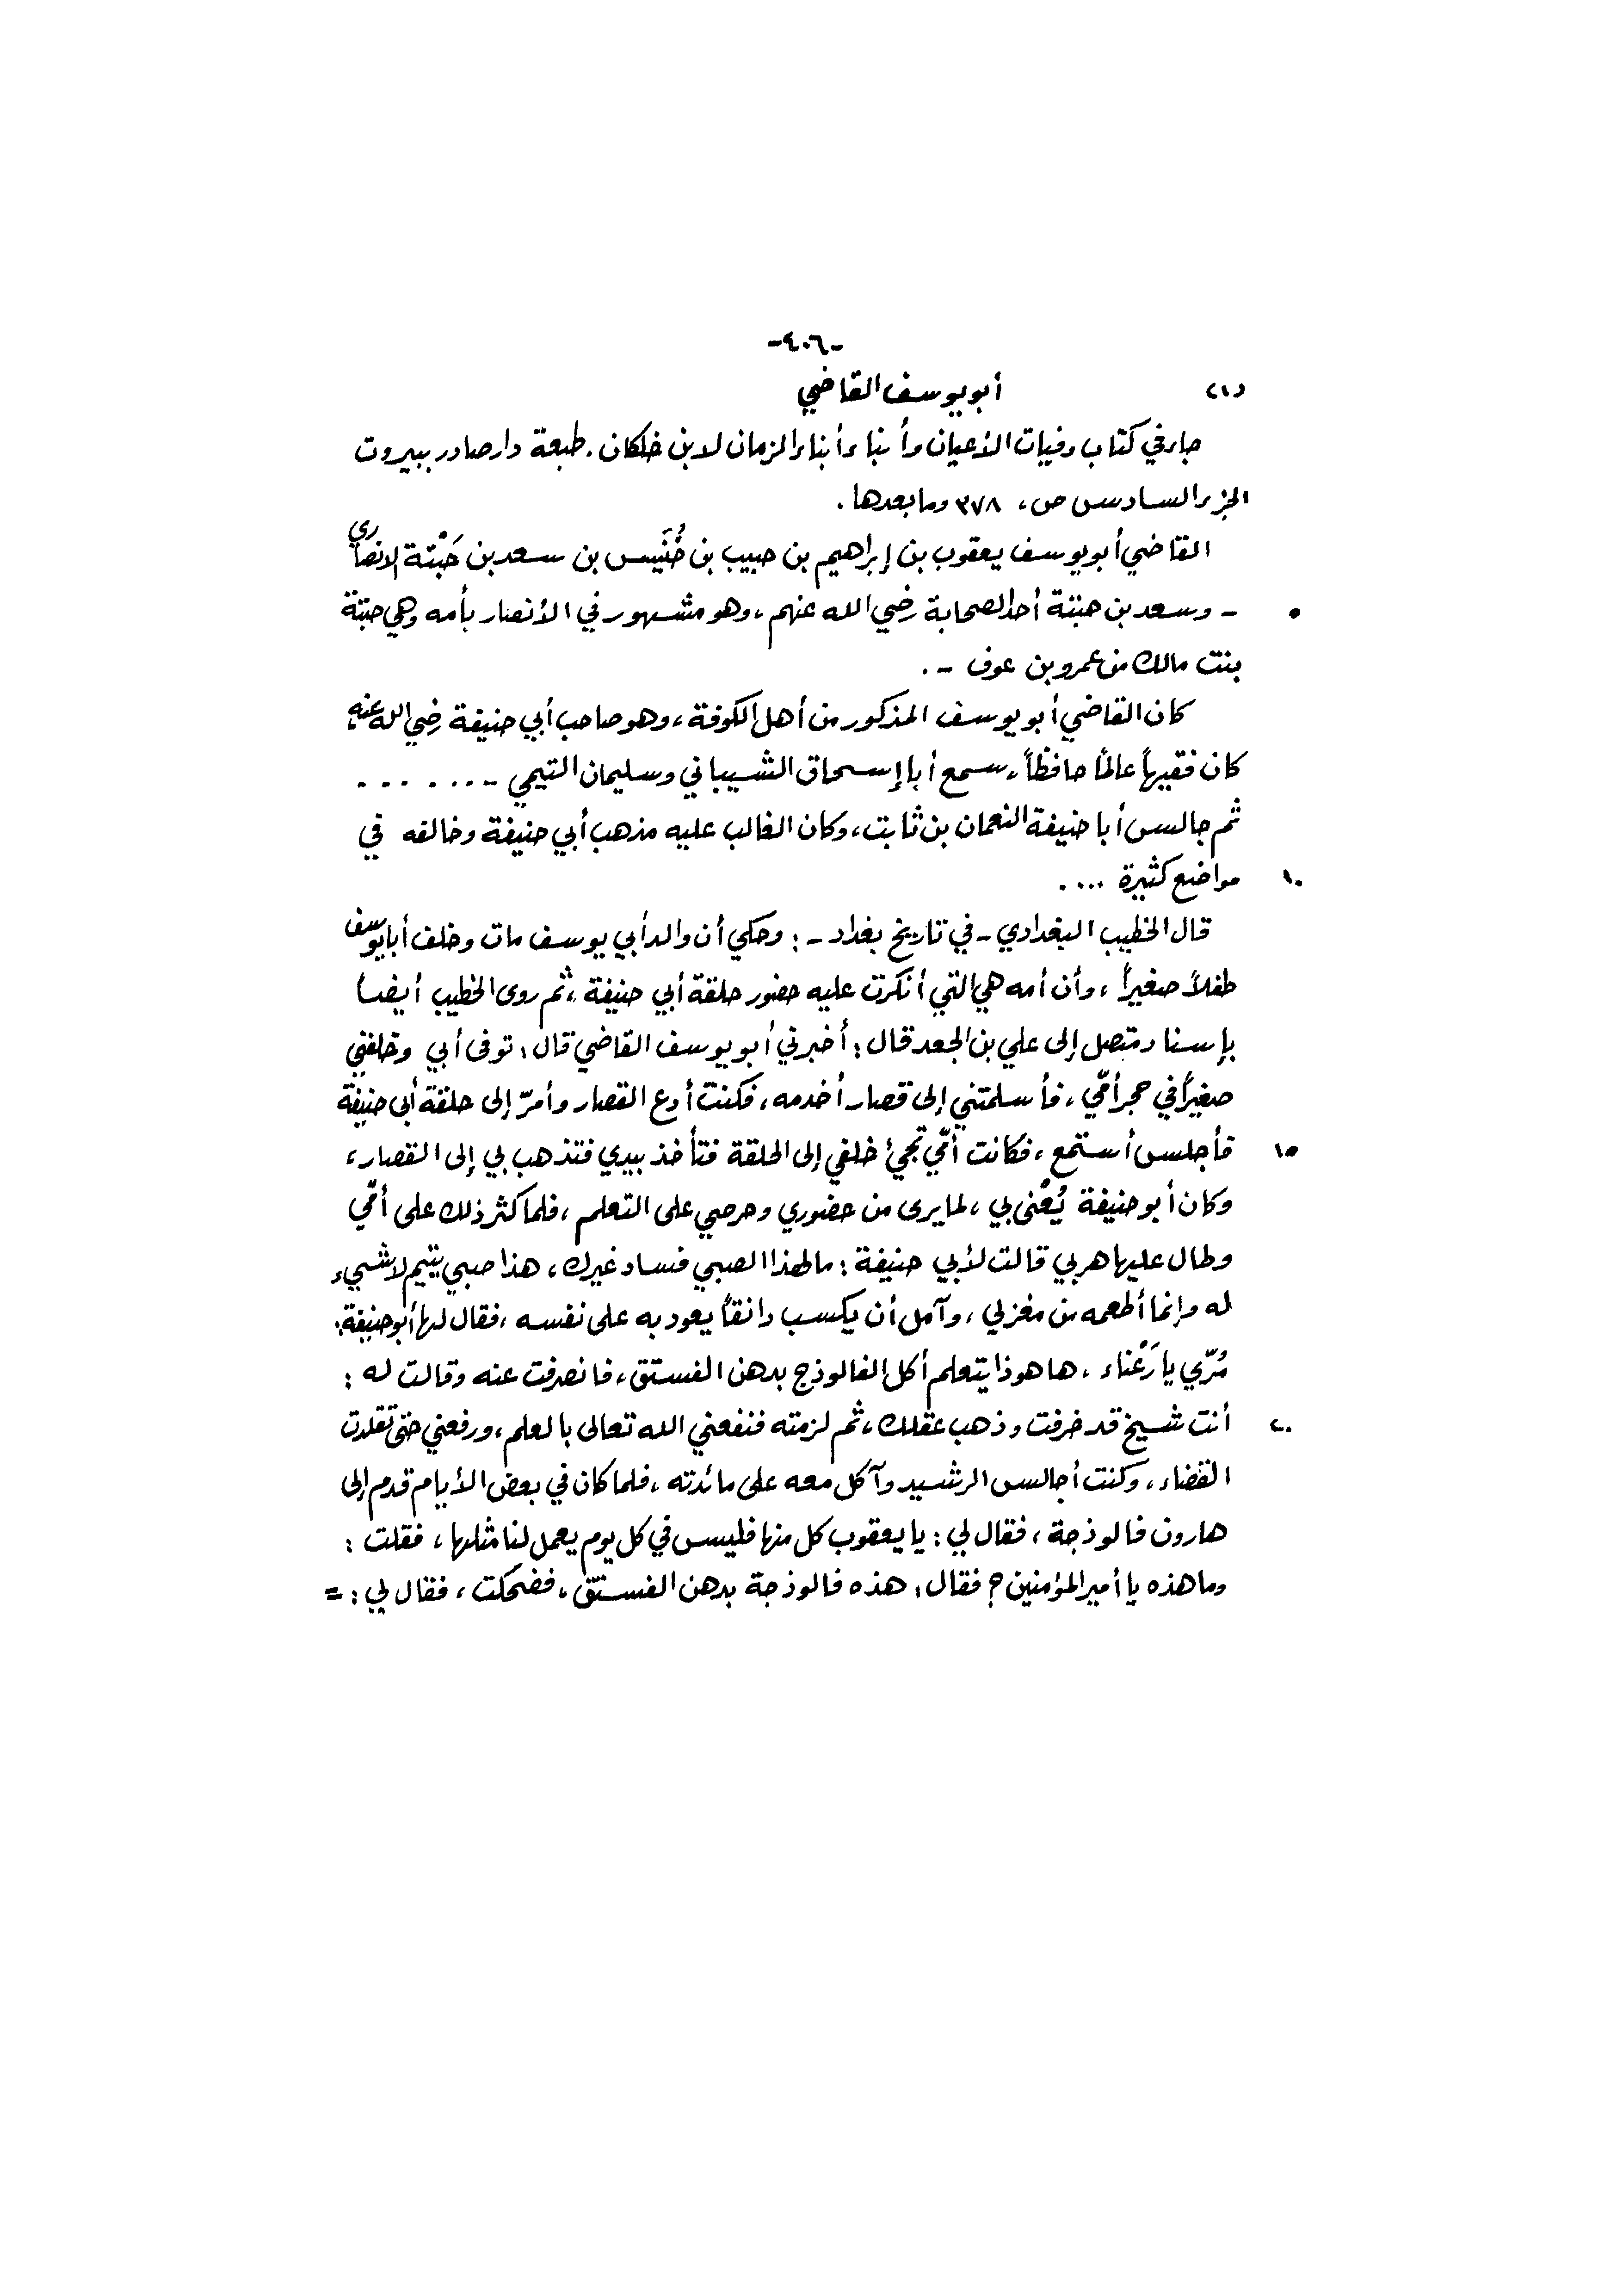 -٤٠٦-
(١) أبو يوسف القاضي
جاء في كتاب وفيات الأعيان وأنباء أبناء الزمان لابن خلكان. طبعة دار صادر ببيروت
الجزء السادس ص، ٣٧٨ وما بعدها.
القاضي أبو يوسف يعقوب بن إبراهيم بن حبيب بن خُنَيس بن سعد بن حَبْتة الانصاري
٥ - وسعد بن حبتة أحد الصحابة رضي الله عنهم، وهو مشهور في الأنصار بأمه وهي حبتة
بنت مالك من عمرو بن عوف -.
كان القاضي أبو يوسف المذكور من أهل الكوفة، وهو صاحب أبي حنيفة رضي الله عنه
كان فقيهاً عالماً حافظاً، سمع أبا إسحاق الشيباني وسليمان التيمي ........
ثم جالس أبا حنيفة النعمان بن ثابت، وكان الغالب عليه مذهب أبي حنيفة وخالفه في
١٠ مواضع كثيرة ....
قال الخطيب البغدادي - في تاريخ بغداد -: وحكي أن والد أبي يوسف مات وخلف أبا يوسف
طفلاً صغيراً، وأن أمه هي التي أنكرت عليه حضور حلقة أبي حنيفة، ثم روى الخطيب أيضاً
بإسناد متصل إلى علي بن الجعد قال: أخبرني أبو يوسف القاضي قال: توفى أبي وخلفني
صغيراً في حجر أمّي، فأسلمتني إلى قصار أخدمه، فكنت أدع القصار وأمرّ إلى حلقة أبى حنيفة
١٥ فأجلس أستمع، فكانت أمّي تجيئ خلفي إلى الحلقة فتأخذ بيدي فتذهب بي إلى القصار،
وكان أبو حنيفة يُعْنى بي، لما يرى من حضوري وحرصي على التعلم، فلما كثر ذلك على أمّي
وطال عليها هربي قالت لأبي حنيفة: ما لهذا الصبي فساد غيرك، هذا صبي يتيم لا شيء
له وإنما أطعمه من مغزلي، وآمل أن يكسب دانقاً يعود به على نفسه، فقال لها أبو حنيفة:
مُرّي يا رَعْناء، ها هو ذا يتعلم أكل الفالوذج بدهن الفستق، فانصرفت عنه وقالت له:
٢٠ أنت شيخ قد خرفت وذهب عقلك، ثم لزمته فنفعني الله تعالى بالعلم، ورفعني حتى تقلدت
القضاء، وكنت أجالس الرشيد وآكل معه على مائدته، فلما كان في بعض الأيام قدم إلى
هارون فالوذجة، فقال لي: يا يعقوب كل منها فليس في كل يوم يعمل لنا مثلها، فقلت:
وما هذه يا أمير المؤمنين؟ فقال: هذه فالوذجة بدهن الفستق، فضحكت، فقال لي: =